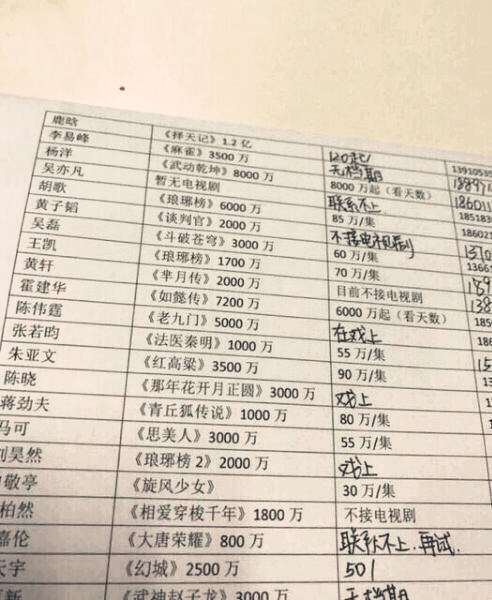 鹿晗 《择天记》1.2 亿 120起/ 13910535
李易峰 《麻雀》3500 万 无档期
杨洋 《武动乾坤》8000 万 8000 万起（看天数） 186011
吴亦凡 暂无电视剧 联系不上 185183
胡歌 《琅琊榜》6000 万 85 万/集 18602
黄子韬 《谈判官》2000 万 不接电视剧 1370
吴磊 《斗破苍穹》3000 万 60 万/集 1366
王凯 《琅琊榜》1700 万 70 万/集 189
黄轩 《芈月传》2000 万 目前不接电视剧 138
霍建华 《如懿传》7200 万 6000 万起（看天数） 185
陈伟霆 《老九门》5000 万 在戏上 186
张若昀 《法医秦明》1000 万 55 万/集 15
朱亚文 《红高粱》3500 万 90 万/集 1
陈晓 《那年花开月正圆》3000 万 戏上
蒋劲夫 《青丘狐传说》1000 万 80 万/集
马可 《思美人》3000 万 55 万/集
刘昊然 《琅琊榜 2》2000 万 戏上
敬亭 《旋风少女》 30 万/集
柏然 《相爱穿梭千年》1800 万 不接电视剧
嘉伦 《大唐荣耀》800 万 联系不上,再试.
天宇 《幻城》2500 万 50/
新 《武神赵子龙》3000 万 无档期